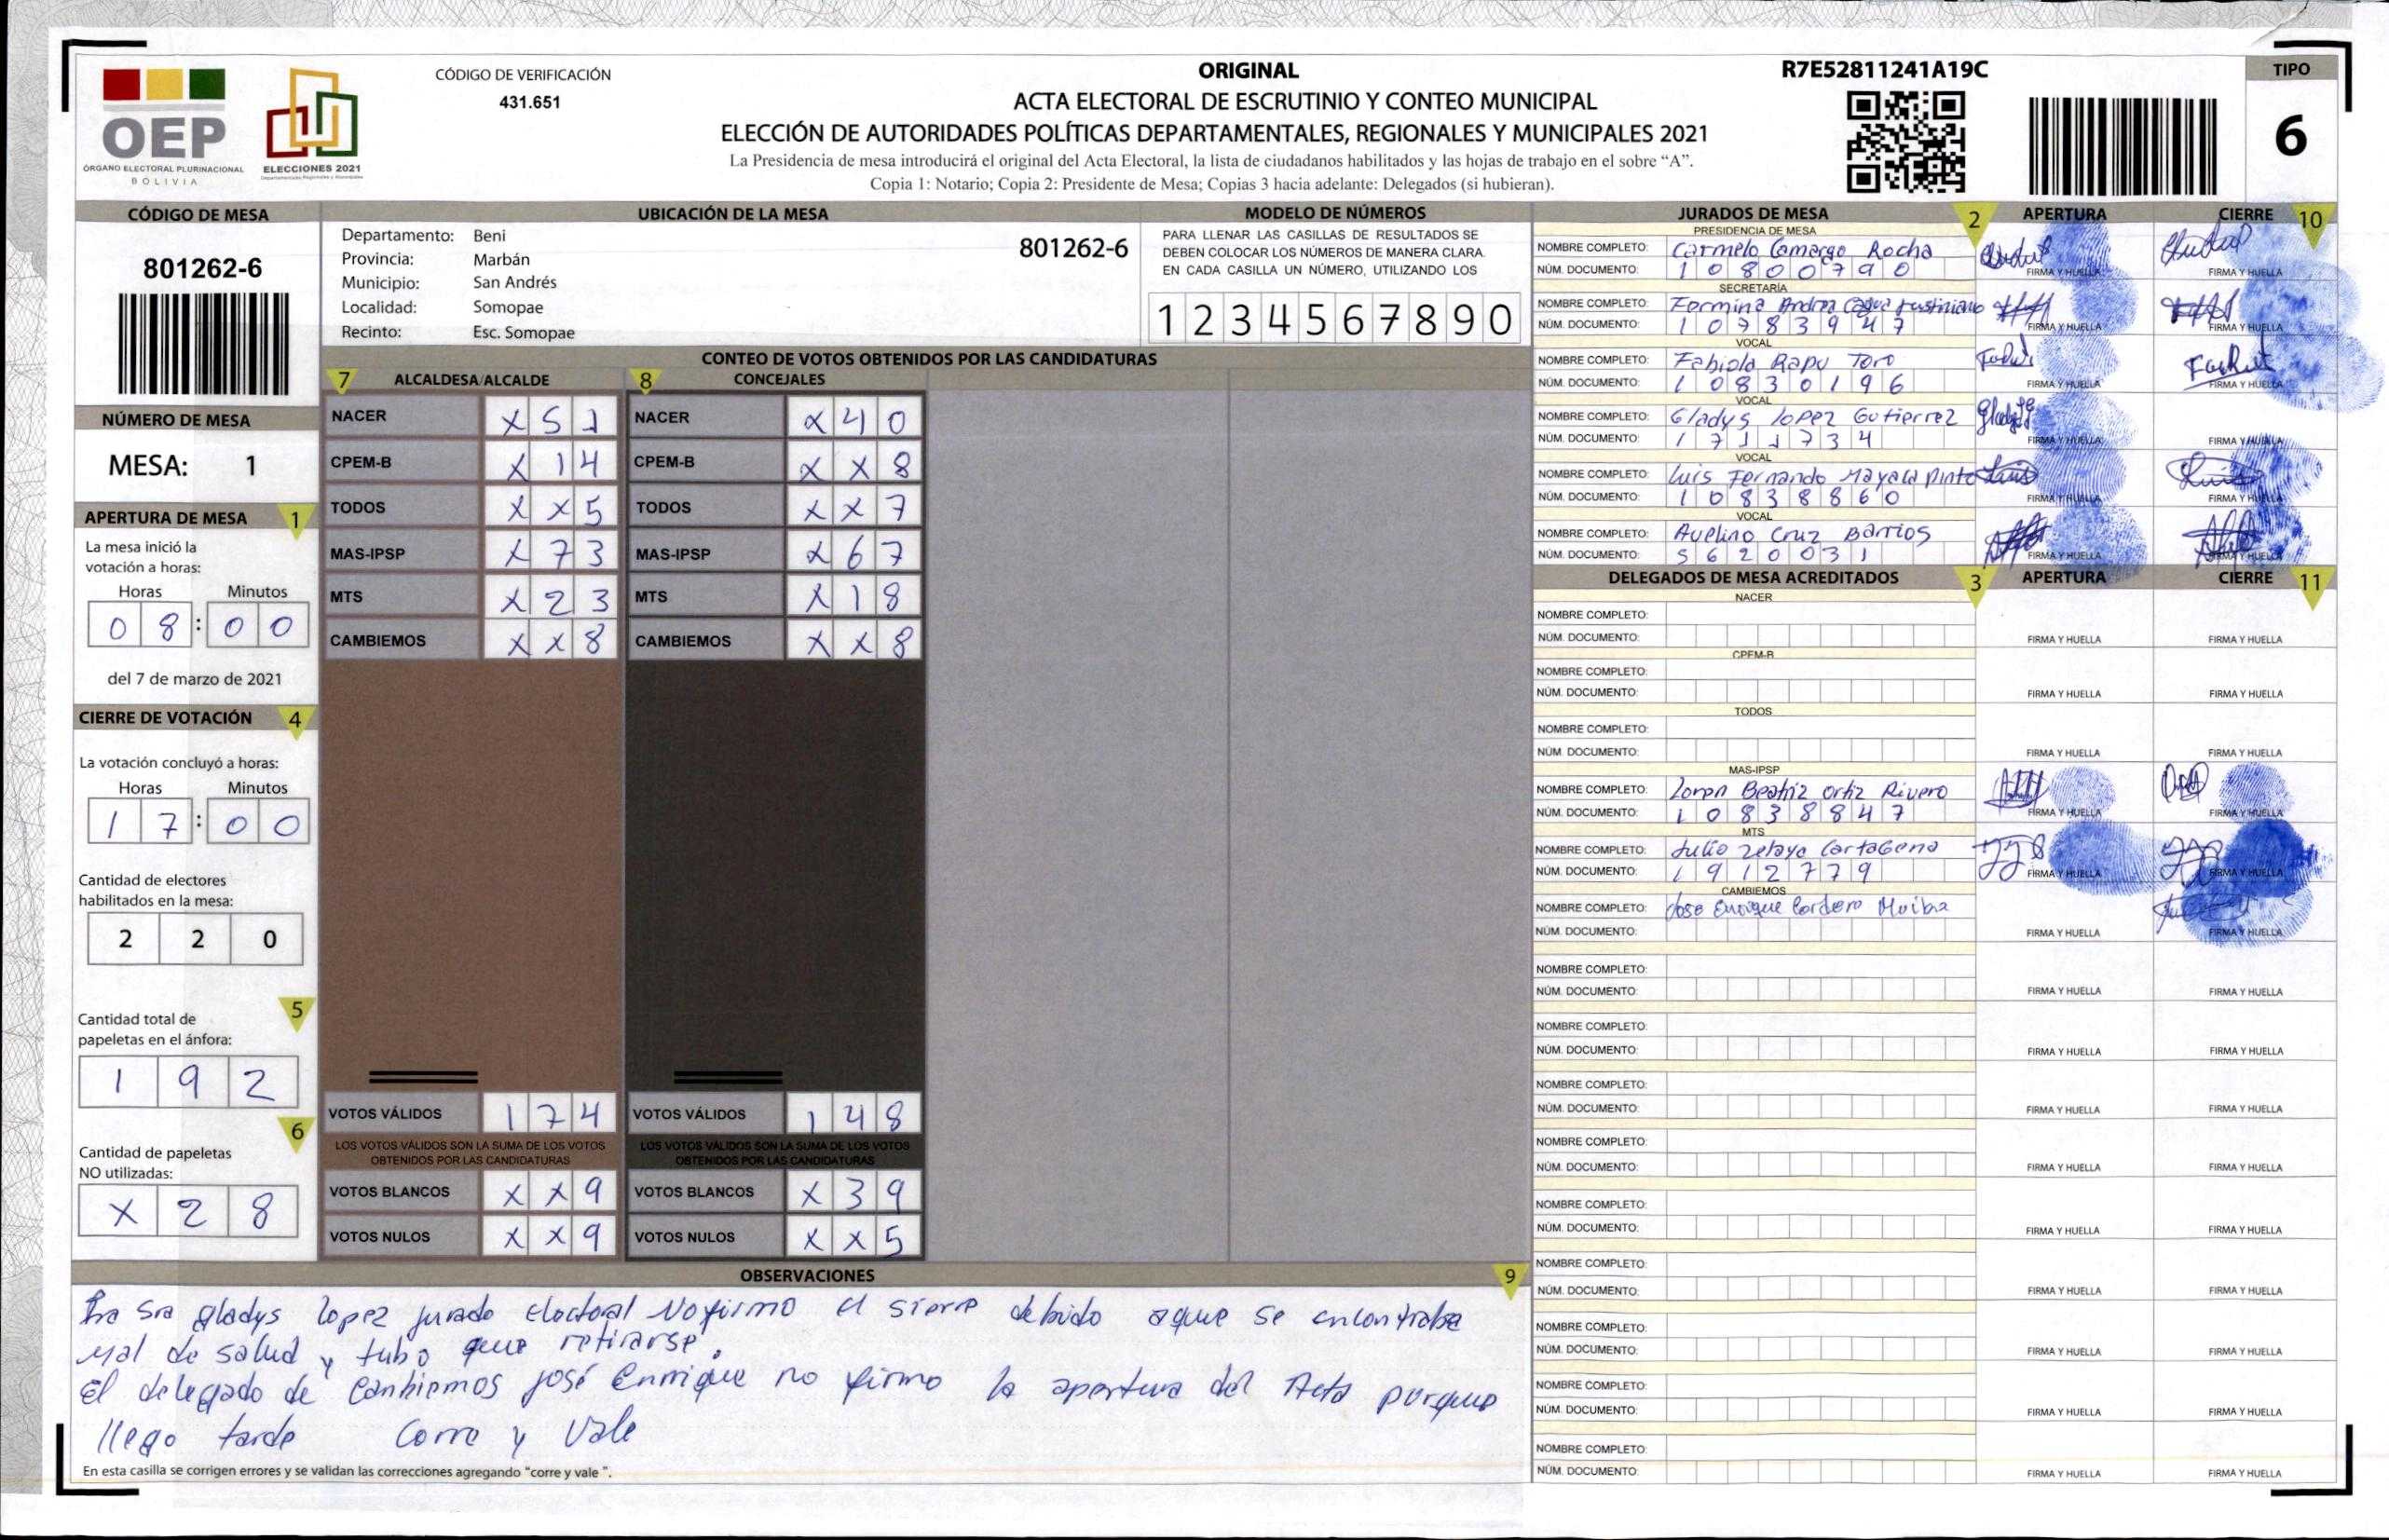 OEP
ÓRGANO ELECTORAL PLURINACIONAL
BOLIVIA
ELECCIONES 2021
CÓDIGO DE VERIFICACIÓN
431.651
ORIGINAL
ACTA ELECTORAL DE ESCRUTINIO Y CONTEO MUNICIPAL
ELECCIÓN DE AUTORIDADES POLÍTICAS DEPARTAMENTALES, REGIONALES Y MUNICIPALES 2021
La Presidencia de mesa introducirá el original del Acta Electoral, la lista de ciudadanos habilitados y las hojas de trabajo en el sobre “A”.
Copia 1: Notario; Copia 2: Presidente de Mesa; Copias 3 hacia adelante: Delegados (si hubieran).
R7E52811241A19C
TIPO
6
CÓDIGO DE MESA
801262-6
NÚMERO DE MESA
MESA: 1
APERTURA DE MESA 1
La mesa inició la
votación a horas:
Horas Minutos
0 8 : 0 0
del 7 de marzo de 2021
CIERRE DE VOTACIÓN 4
La votación concluyó a horas:
Horas Minutos
1 7 : 0 0
Cantidad de electores
habilitados en la mesa:
2 2 0
5
Cantidad total de
papeletas en el ánfora:
1 9 2
6
Cantidad de papeletas
NO utilizadas:
X 2 8
UBICACIÓN DE LA MESA
Departamento: Beni
Provincia: Marbán
Municipio: San Andrés
Localidad: Somopae
Recinto: Esc. Somopae
801262-6
MODELO DE NÚMEROS
PARA LLENAR LAS CASILLAS DE RESULTADOS SE
DEBEN COLOCAR LOS NÚMEROS DE MANERA CLARA.
EN CADA CASILLA UN NÚMERO, UTILIZANDO LOS
1 2 3 4 5 6 7 8 9 0
CONTEO DE VOTOS OBTENIDOS POR LAS CANDIDATURAS
7 ALCALDESA/ALCALDE
NACER X 5 1
CPEM-B X 1 4
TODOS X X 5
MAS-IPSP X 7 3
MTS X 2 3
CAMBIEMOS X X 8
VOTOS VÁLIDOS 1 7 4
LOS VOTOS VÁLIDOS SON LA SUMA DE LOS VOTOS
OBTENIDOS POR LAS CANDIDATURAS
VOTOS BLANCOS X X 9
VOTOS NULOS X X 9
8 CONCEJALES
NACER X 4 0
CPEM-B X X 8
TODOS X X 7
MAS-IPSP X 6 7
MTS X 1 8
CAMBIEMOS X X 8
VOTOS VÁLIDOS 1 4 8
LOS VOTOS VÁLIDOS SON LA SUMA DE LOS VOTOS
OBTENIDOS POR LAS CANDIDATURAS
VOTOS BLANCOS X 3 9
VOTOS NULOS X X 5
OBSERVACIONES 9
Sra gladys lopez jurado electoral No firmo el sierre debido aque se encontraba
mal de salud y tubo que retirarse.
El delegado de Cambiemos josé Enrrique no firmo la apertura del Acta porque
llego tarde Corre y Vale
En esta casilla se corrigen errores y se validan las correcciones agregando “corre y vale ”.
JURADOS DE MESA 2 APERTURA CIERRE 10
PRESIDENCIA DE MESA
NOMBRE COMPLETO: Carmelo Camargo Rocha
NÚM. DOCUMENTO: 1 0 8 0 0 7 9 0 FIRMA Y HUELLA FIRMA Y HUELLA
SECRETARÍA
NOMBRE COMPLETO: Fermina Andrea
NÚM. DOCUMENTO: 1 0 7 8 3 9 4 7 FIRMA Y HUELLA FIRMA Y HUELLA
VOCAL
NOMBRE COMPLETO: Fabiola Rapu Toro
NÚM. DOCUMENTO: 1 0 8 3 0 1 9 6 FIRMA Y HUELLA FIRMA Y HUELLA
VOCAL
NOMBRE COMPLETO: Gladys lopez Gutierrez
NÚM. DOCUMENTO: 1 7 1 1 7 3 4 FIRMA Y HUELLA FIRMA Y HUELLA
VOCAL
NOMBRE COMPLETO: Luis Fernando Mayala Pinto
NÚM. DOCUMENTO: 1 0 8 3 8 8 6 0 FIRMA Y HUELLA FIRMA Y HUELLA
VOCAL
NOMBRE COMPLETO: Avelino Cruz Barrios
NÚM. DOCUMENTO: 5 6 2 0 0 3 1 FIRMA Y HUELLA FIRMA Y HUELLA
DELEGADOS DE MESA ACREDITADOS 3 APERTURA CIERRE 11
NACER
NOMBRE COMPLETO:
NÚM. DOCUMENTO: FIRMA Y HUELLA FIRMA Y HUELLA
CPEM-B
NOMBRE COMPLETO:
NÚM. DOCUMENTO: FIRMA Y HUELLA FIRMA Y HUELLA
TODOS
NOMBRE COMPLETO:
NÚM. DOCUMENTO: FIRMA Y HUELLA FIRMA Y HUELLA
MAS-IPSP
NOMBRE COMPLETO: Loren Beatriz Ortiz Rivero
NÚM. DOCUMENTO: 1 0 8 3 8 8 4 7 FIRMA Y HUELLA FIRMA Y HUELLA
MTS
NOMBRE COMPLETO: Julio Zelaya Cartagena
NÚM. DOCUMENTO: 1 9 1 2 7 7 9 FIRMA Y HUELLA FIRMA Y HUELLA
CAMBIEMOS
NOMBRE COMPLETO: Jose Enrique Cordero Moiba
NÚM. DOCUMENTO: FIRMA Y HUELLA FIRMA Y HUELLA
NOMBRE COMPLETO:
NÚM. DOCUMENTO: FIRMA Y HUELLA FIRMA Y HUELLA
NOMBRE COMPLETO:
NÚM. DOCUMENTO: FIRMA Y HUELLA FIRMA Y HUELLA
NOMBRE COMPLETO:
NÚM. DOCUMENTO: FIRMA Y HUELLA FIRMA Y HUELLA
NOMBRE COMPLETO:
NÚM. DOCUMENTO: FIRMA Y HUELLA FIRMA Y HUELLA
NOMBRE COMPLETO:
NÚM. DOCUMENTO: FIRMA Y HUELLA FIRMA Y HUELLA
NOMBRE COMPLETO:
NÚM. DOCUMENTO: FIRMA Y HUELLA FIRMA Y HUELLA
NOMBRE COMPLETO:
NÚM. DOCUMENTO: FIRMA Y HUELLA FIRMA Y HUELLA
NOMBRE COMPLETO:
NÚM. DOCUMENTO: FIRMA Y HUELLA FIRMA Y HUELLA
NOMBRE COMPLETO:
NÚM. DOCUMENTO: FIRMA Y HUELLA FIRMA Y HUELLA